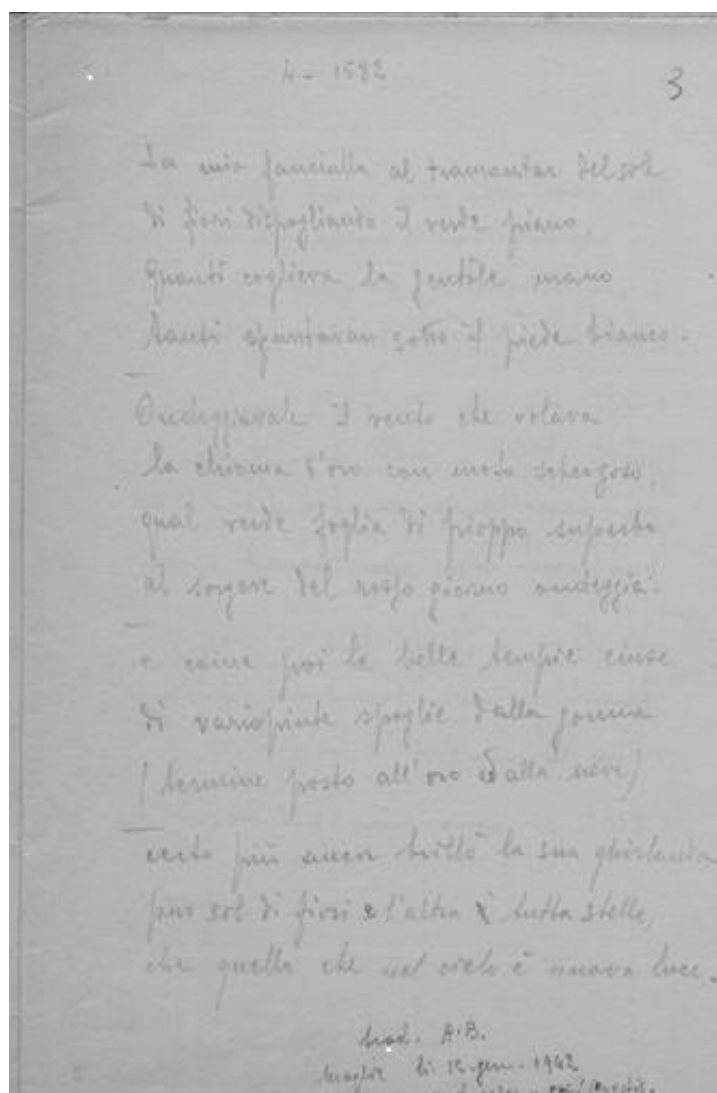 4 - 1582
3
La mia fanciulla al tramontar del sole
di fiori dispogliando il verde piano,
quanti coglieva la gentile mano
tanti spuntavan sotto il piede bianco.
Ondeggiavale il vento che volava
la chioma d'oro con moto scherzoso,
qual verde foglia di pioppo superbo
al sorgere del rosso giorno ondeggia:
e come poi le belle tempie cinse
di variopinte spoglie dalla
(termine posto all'oro ed alla neve)
certo più ancor brillò la sua ghirlanda
pur sol di fiori e l'altra è tutta stelle,
che quella che nel cielo è nuova luce.
trad. A.B.
Maglie li 12. gen. 1942